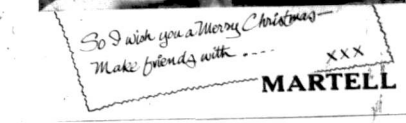 So I wish you a Merry Christmas—
Make friends with ....
xxx
MARTELL